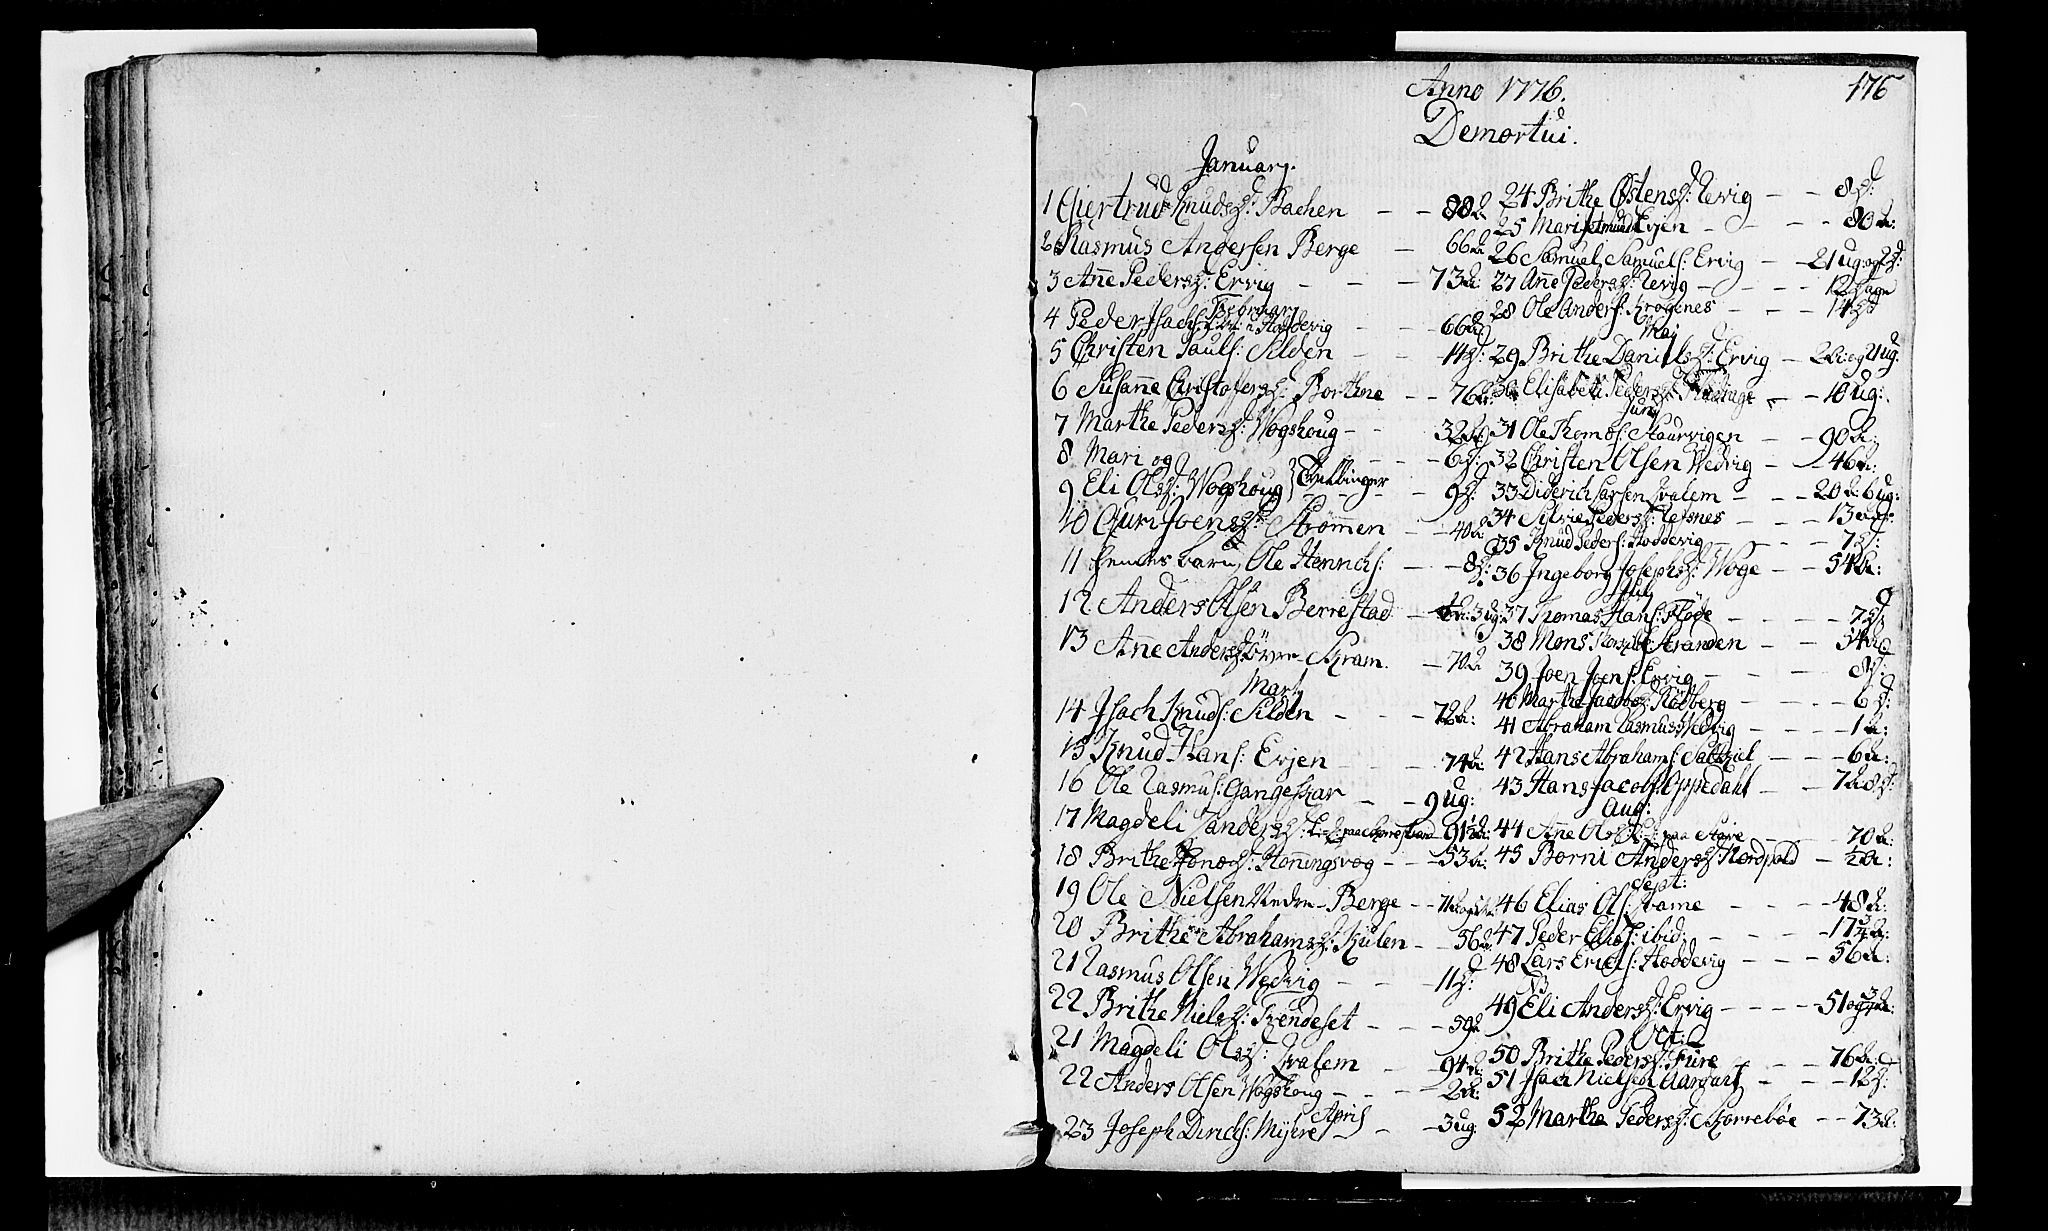 Anno 1776.
176
Demortui.
Januarj.
1 Giertrud Knudsd: Bachen - - 88 Ar
2 Rasmus Andersen Berge - 66 Ar
3 Ane Pedersd: Ervig - - - 73 Ar
Februarj
4 Peder Isachs: Hoddevig - - - 66 Ar
5 Christen Pauls: Silden - - 14 d:
6 Susanne Christophersd: Borthne - - 76 Ar
7 Marthe Pedersd: Wogshoug - - 32 Ar
8 Mari og - - - 6 d:
9 Eli Olsd: Wogshoug } Tvillinger - 9 d:
10 Guri Joensd: Strømmen - - 40 Ar
11 hendes barn, Ole Henrichs: - - 8 d:
12 Anders Olsen Berrestad - 3 ug:
13 Ane Andersd: - 70 Ar
Martj
14 Isach Knuds: Silden - - - 72 Ar:
15 Knud Hans: Erjen - - - 74 Ar
16 Ole Rasmus: Gangeskar - - 9 ug:
17 Magdeli Andersd: 91½ Ar:
18 Brithe Jonasd: Honningsvog - - 53 Ar:
19 Ole Nielsen Nedre-Berge - -
20 Brithe Abrahamsd: Kulen - - 56 Ar
21 Rasmus Olsen Wedvig - - - 11 d:
22 Brithe Nielsd: Kendeset - - - 59 Ar
21 Magdeli Olsd: Qvalem - - 94 Ar
22 Anders Olsen Wogshoug - - - 2 Ar:
April
23 Joseph Dirichs: Myhre - - 3 ug:
24 Brithe Østensd: Revig - - 8 d:
25 Mari Erjen - - - 80 Ar:
26 Samuel Samuels: Ervig - - 21 ug: og 2 d:
27 Ane Pedersd: Revig - - - - 12 dage
28 Ole Anders: Krogenes - - - 14 d:
Maj
29 Brithe Danielsd: Ervig - 2 Ar: og 21 ug:
30 Elisabeth Pedersd: - - 10 ug:
Junj
31 Ole Thomas: Staurvigen - - 90 Ar:
32 Christen Olsen Wedvig - - 46 Ar:
33 Diderich Larsen Qvalem - - - 20 Ar: 6 ug:
34 Silvie Pedersd: Refsnes - - - 13
35 Knud Peders: Hoddevig - - - 7 d:
36 Ingeborg Josephsd: Woge - - 54 Ar:
Julj
37 Thomas Hans: Fløde - - - - 7 d:
38 Mons Stranden - - 54 Ar
39 Joen Joens: Ervig - - - 8 d:
40 Marthe Jacobsd: Rødberg - - - 6 d:
41 Abraham Rasmuss: Wedvig - - - 1 Ar:
42 Hans Abrahams: Saltkiel - - - 6 Ar:
43 Hans Jacobs: Oppedahl - -
Aug:
44 Ane Olsd: paa Aarre - - 70 Ar:
45 Børni Andersd: Nordpold - ½ Ar:
Sept:
46 Elias Ols: Qvame - - - 48 Ar:
47 Peder Elias: ibid: - - - - 17¾ Ar:
48 Lars Erichs: Hoddevig - - - 56 Ar:
49 Eli Andersd: Ervig - - - - 51 og ¾ Ar:
Oct:
50 Brithe Pedersd: Fure - - - 76 Ar:
51 Isach Nielsen Aargard - - - 12 d:
52 Marthe Pedersd: Skorrebøe - - 73 Ar: